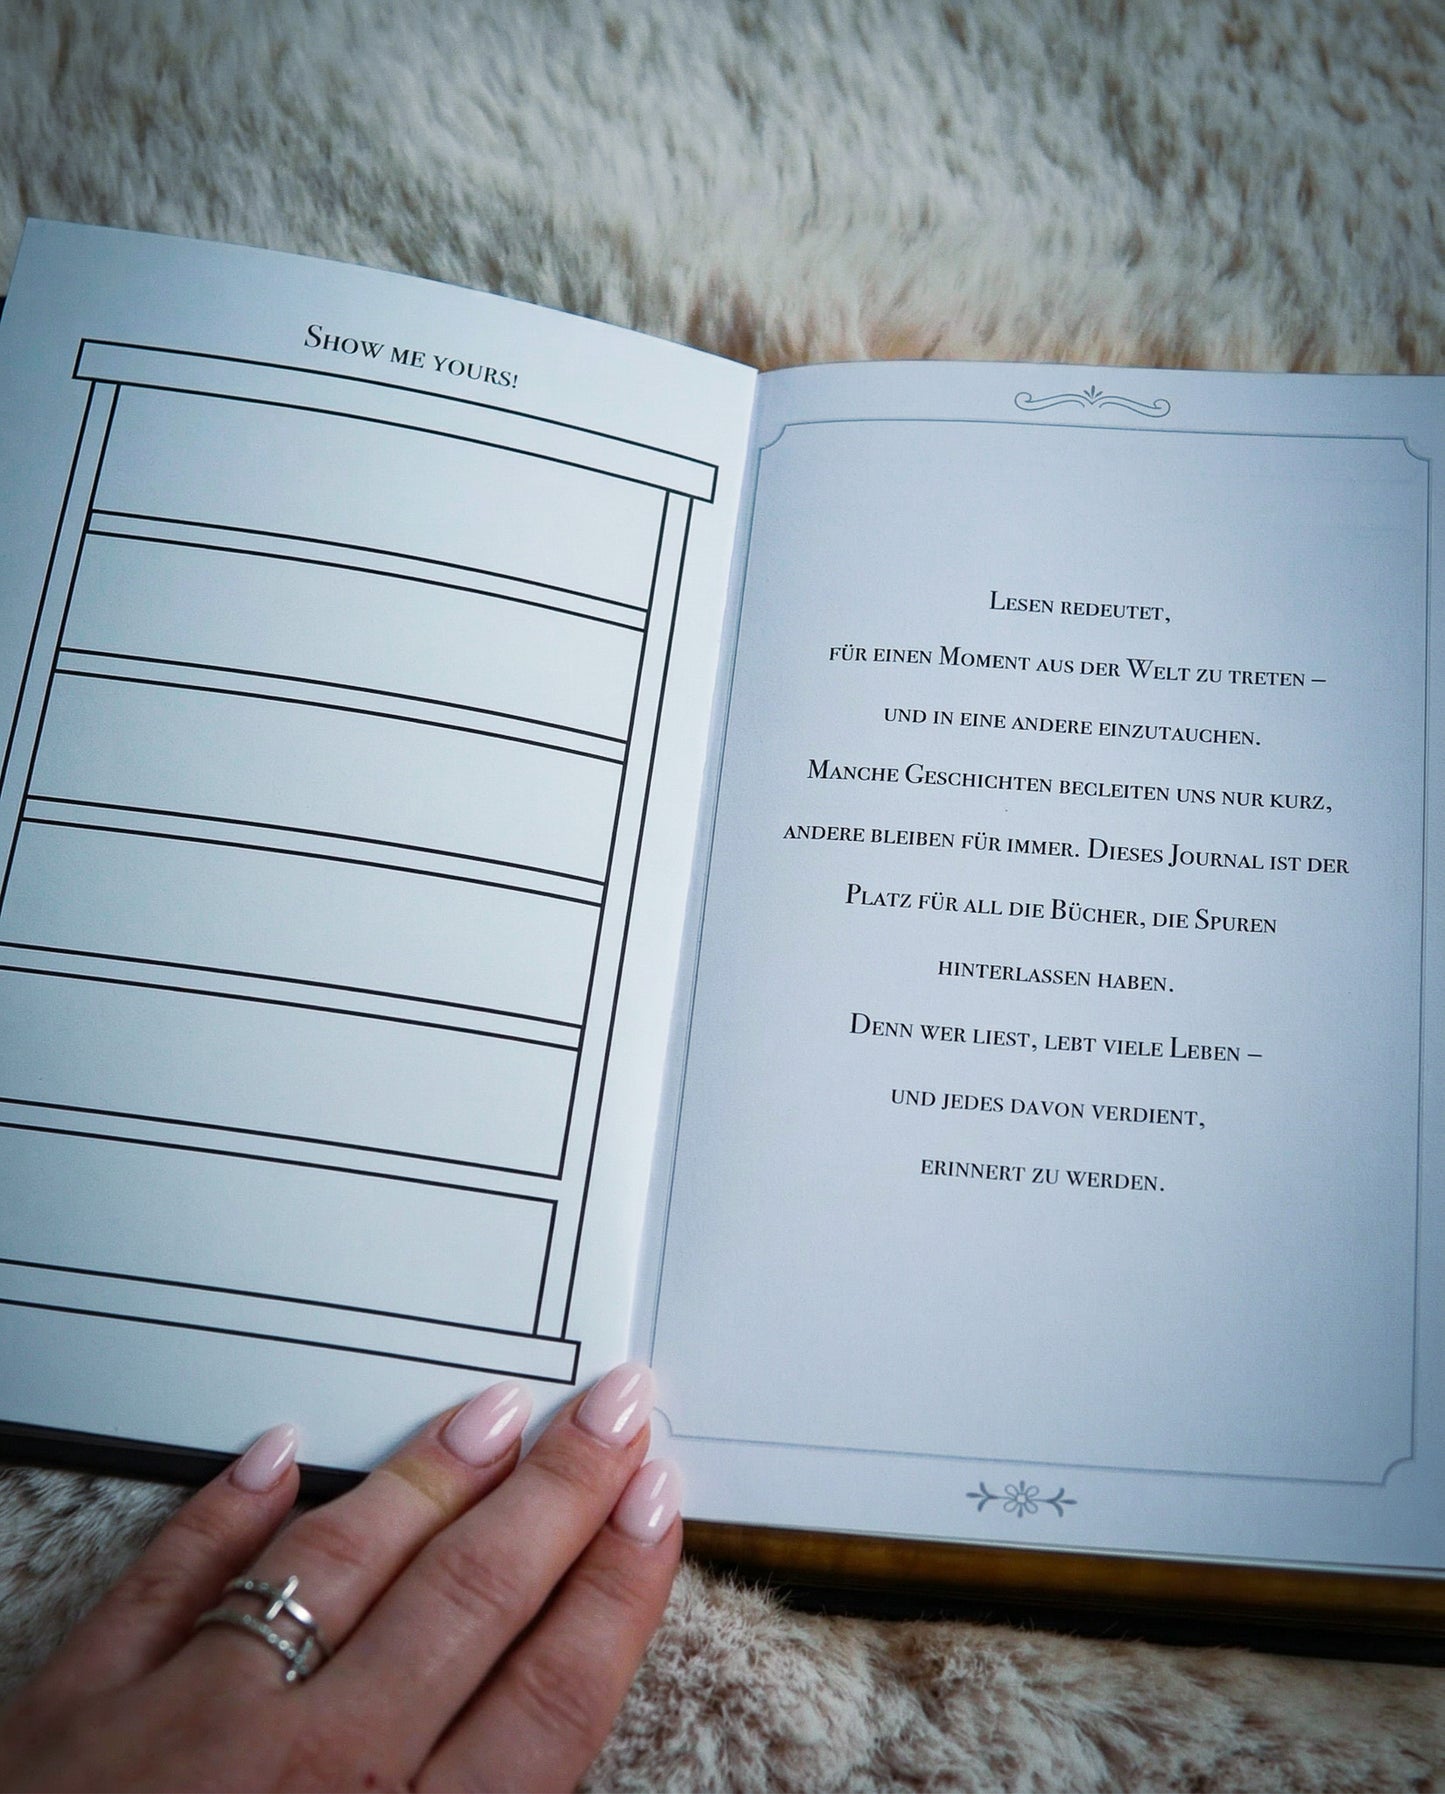 Show me yours!
Lesen redeutet,
für einen Moment aus der Welt zu treten –
und in eine andere einzutauchen.
Manche Geschichten begleiten uns nur kurz,
andere bleiben für immer. Dieses Journal ist der
Platz für all die Bücher, die Spuren
hinterlassen haben.
Denn wer liest, lebt viele Leben –
und jedes davon verdient,
erinnert zu werden.